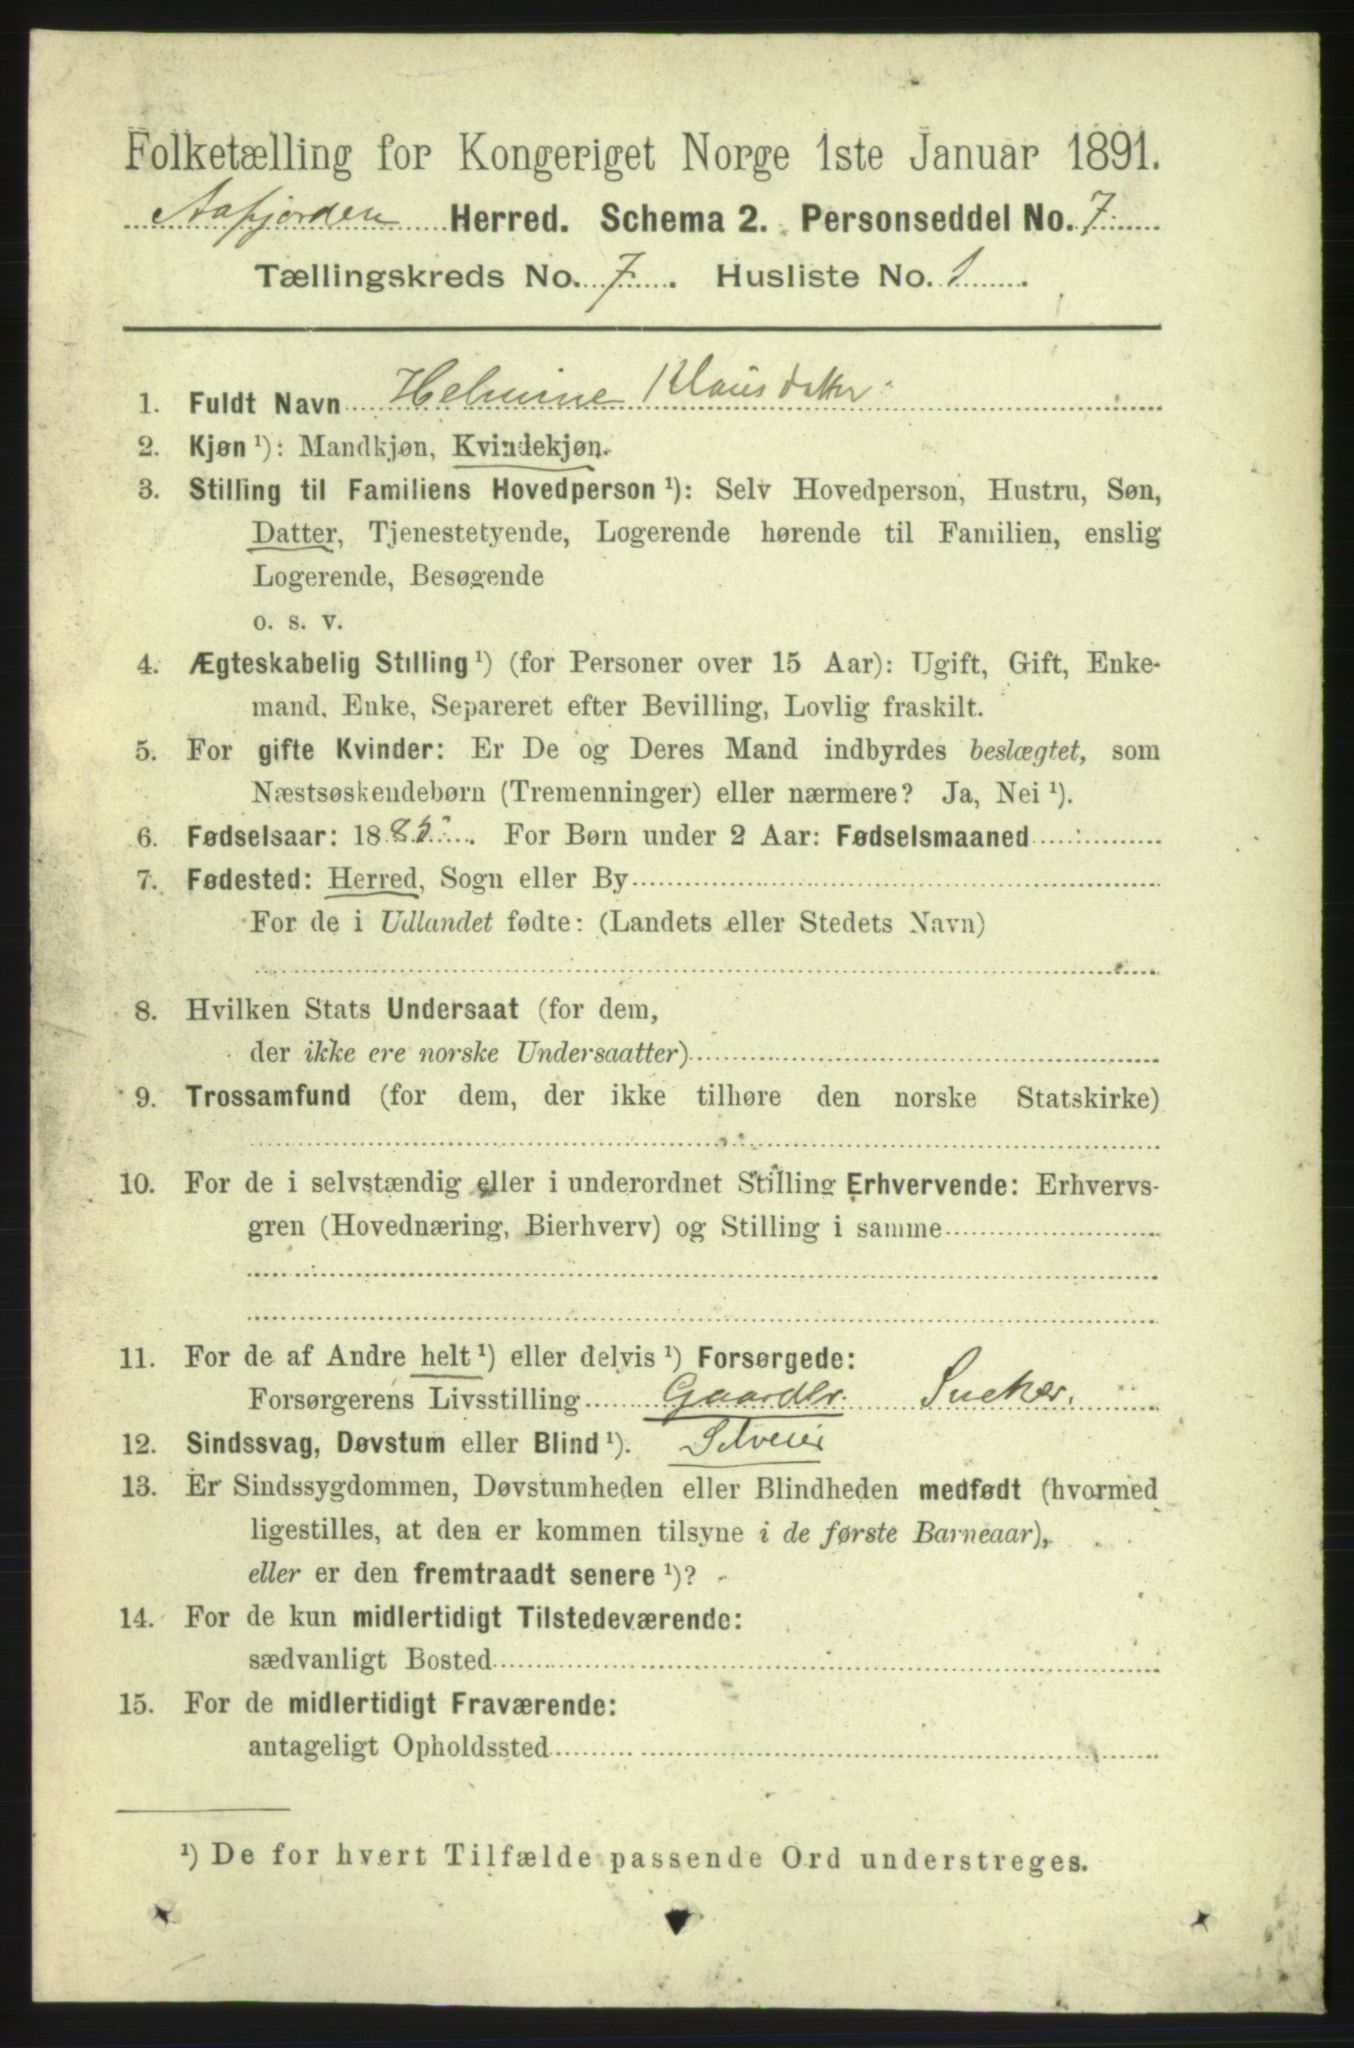 Folketælling for Kongeriget Norge 1ste Januar 1891.
Aafjorden Herred. Schema 2. Personseddel No. 7
Tællingskreds No. 7. Husliste No. 1.
1. Fuldt Navn Helmine Klausdatter
2. Kjøn ¹): Mandkjøn, Kvindekjøn.
3. Stilling til Familiens Hovedperson ¹): Selv Hovedperson, Hustru, Søn,
Datter, Tjenestetyende, Logerende hørende til Familien, enslig
Logerende, Besøgende
o. s. v.
4. Ægteskabelig Stilling ¹) (for Personer over 15 Aar): Ugift, Gift, Enke-
mand, Enke, Separeret efter Bevilling, Lovlig fraskilt.
5. For gifte Kvinder: Er De og Deres Mand indbyrdes beslægtet, som
Næstsøskendebørn (Tremenninger) eller nærmere? Ja, Nei ¹).
6. Fødselsaar: 18 For Børn under 2 Aar: Fødselsmaaned
7. Fødested: Herred, Sogn eller By
For de i Udlandet fødte: (Landets eller Stedets Navn)
8. Hvilken Stats Undersaat (for dem,
der ikke ere norske Undersaatter)
9. Trossamfund (for dem, der ikke tilhøre den norske Statskirke)
10. For de i selvstændig eller i underordnet Stilling Erhvervende: Erhvervs-
gren (Hovednæring, Bierhverv) og Stilling i samme
11. For de af Andre helt ¹) eller delvis ¹) Forsørgede:
Forsørgerens Livsstilling Gaardbr. Sneker.
12. Sindssvag, Døvstum eller Blind ¹). Selveier
13. Er Sindssygdommen, Døvstumheden eller Blindheden medfødt (hvormed
ligestilles, at den er kommen tilsyne i de første Barneaar),
eller er den fremtraadt senere ¹)?
14. For de kun midlertidigt Tilstedeværende:
sædvanligt Bosted
15. For de midlertidigt Fraværende:
antageligt Opholdssted
¹) De for hvert Tilfælde passende Ord understreges.